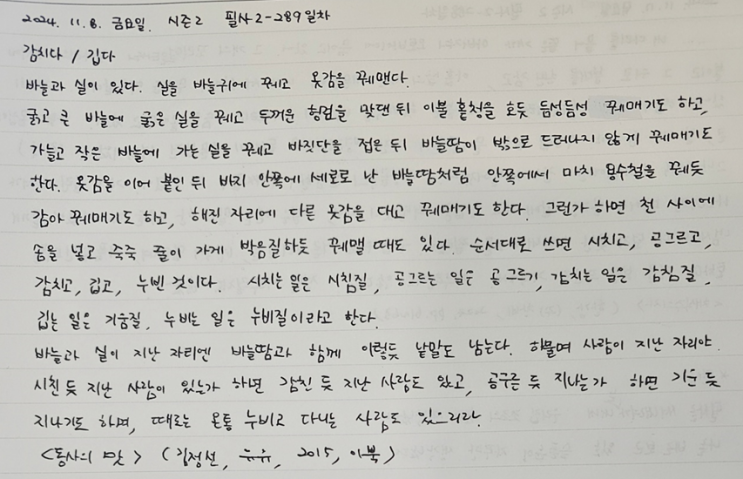 2024. 11. 8. 금요일. 시즌2 필사2-289일차
감치다 / 깁다
바늘과 실이 있다. 실을 바늘귀에 꿰고 옷감을 꿰맨다.
굵고 큰 바늘에 굵은 실을 꿰고 두꺼운 헝겊을 맞댄 뒤 이불 홑청을 호듯 듬성듬성 꿰매기도 하고,
가늘고 작은 바늘에 가는 실을 꿰고 바짓단을 접은 뒤 바늘땀이 밖으로 드러나지 않게 꿰매기도
한다. 옷감을 이어 붙인 뒤 바지 안쪽에 세로로 난 바늘땀처럼 안쪽에서 마치 용수철을 꿰듯
감아 꿰매기도 하고, 해진 자리에 다른 옷감을 대고 꿰매기도 한다. 그런가 하면 천 사이에
솜을 넣고 죽죽 줄이 가게 박음질하듯 꿰맬 때도 있다. 순서대로 쓰면 시치고, 공그르고,
감치고, 깁고, 누빈 것이다. 시치는 일은 시침질, 공그르는 일은 공그르기, 감치는 일은 감침질,
깁는 일은 기움질, 누비는 일은 누비질이라고 한다.
바늘과 실이 지난 자리엔 바늘땀과 함께 이렇듯 낱말도 남는다. 하물며 사람이 지난 자리야.
시친 듯 지난 사람이 있는가 하면 감친 듯 지난 사람도 있고, 공구른 듯 지나는가 하면 기운 듯
지나기도 하며, 때로는 온통 누비고 다니는 사람도 있으리라.
<동사의 맛> (김정선, 유유, 2015, 이북)